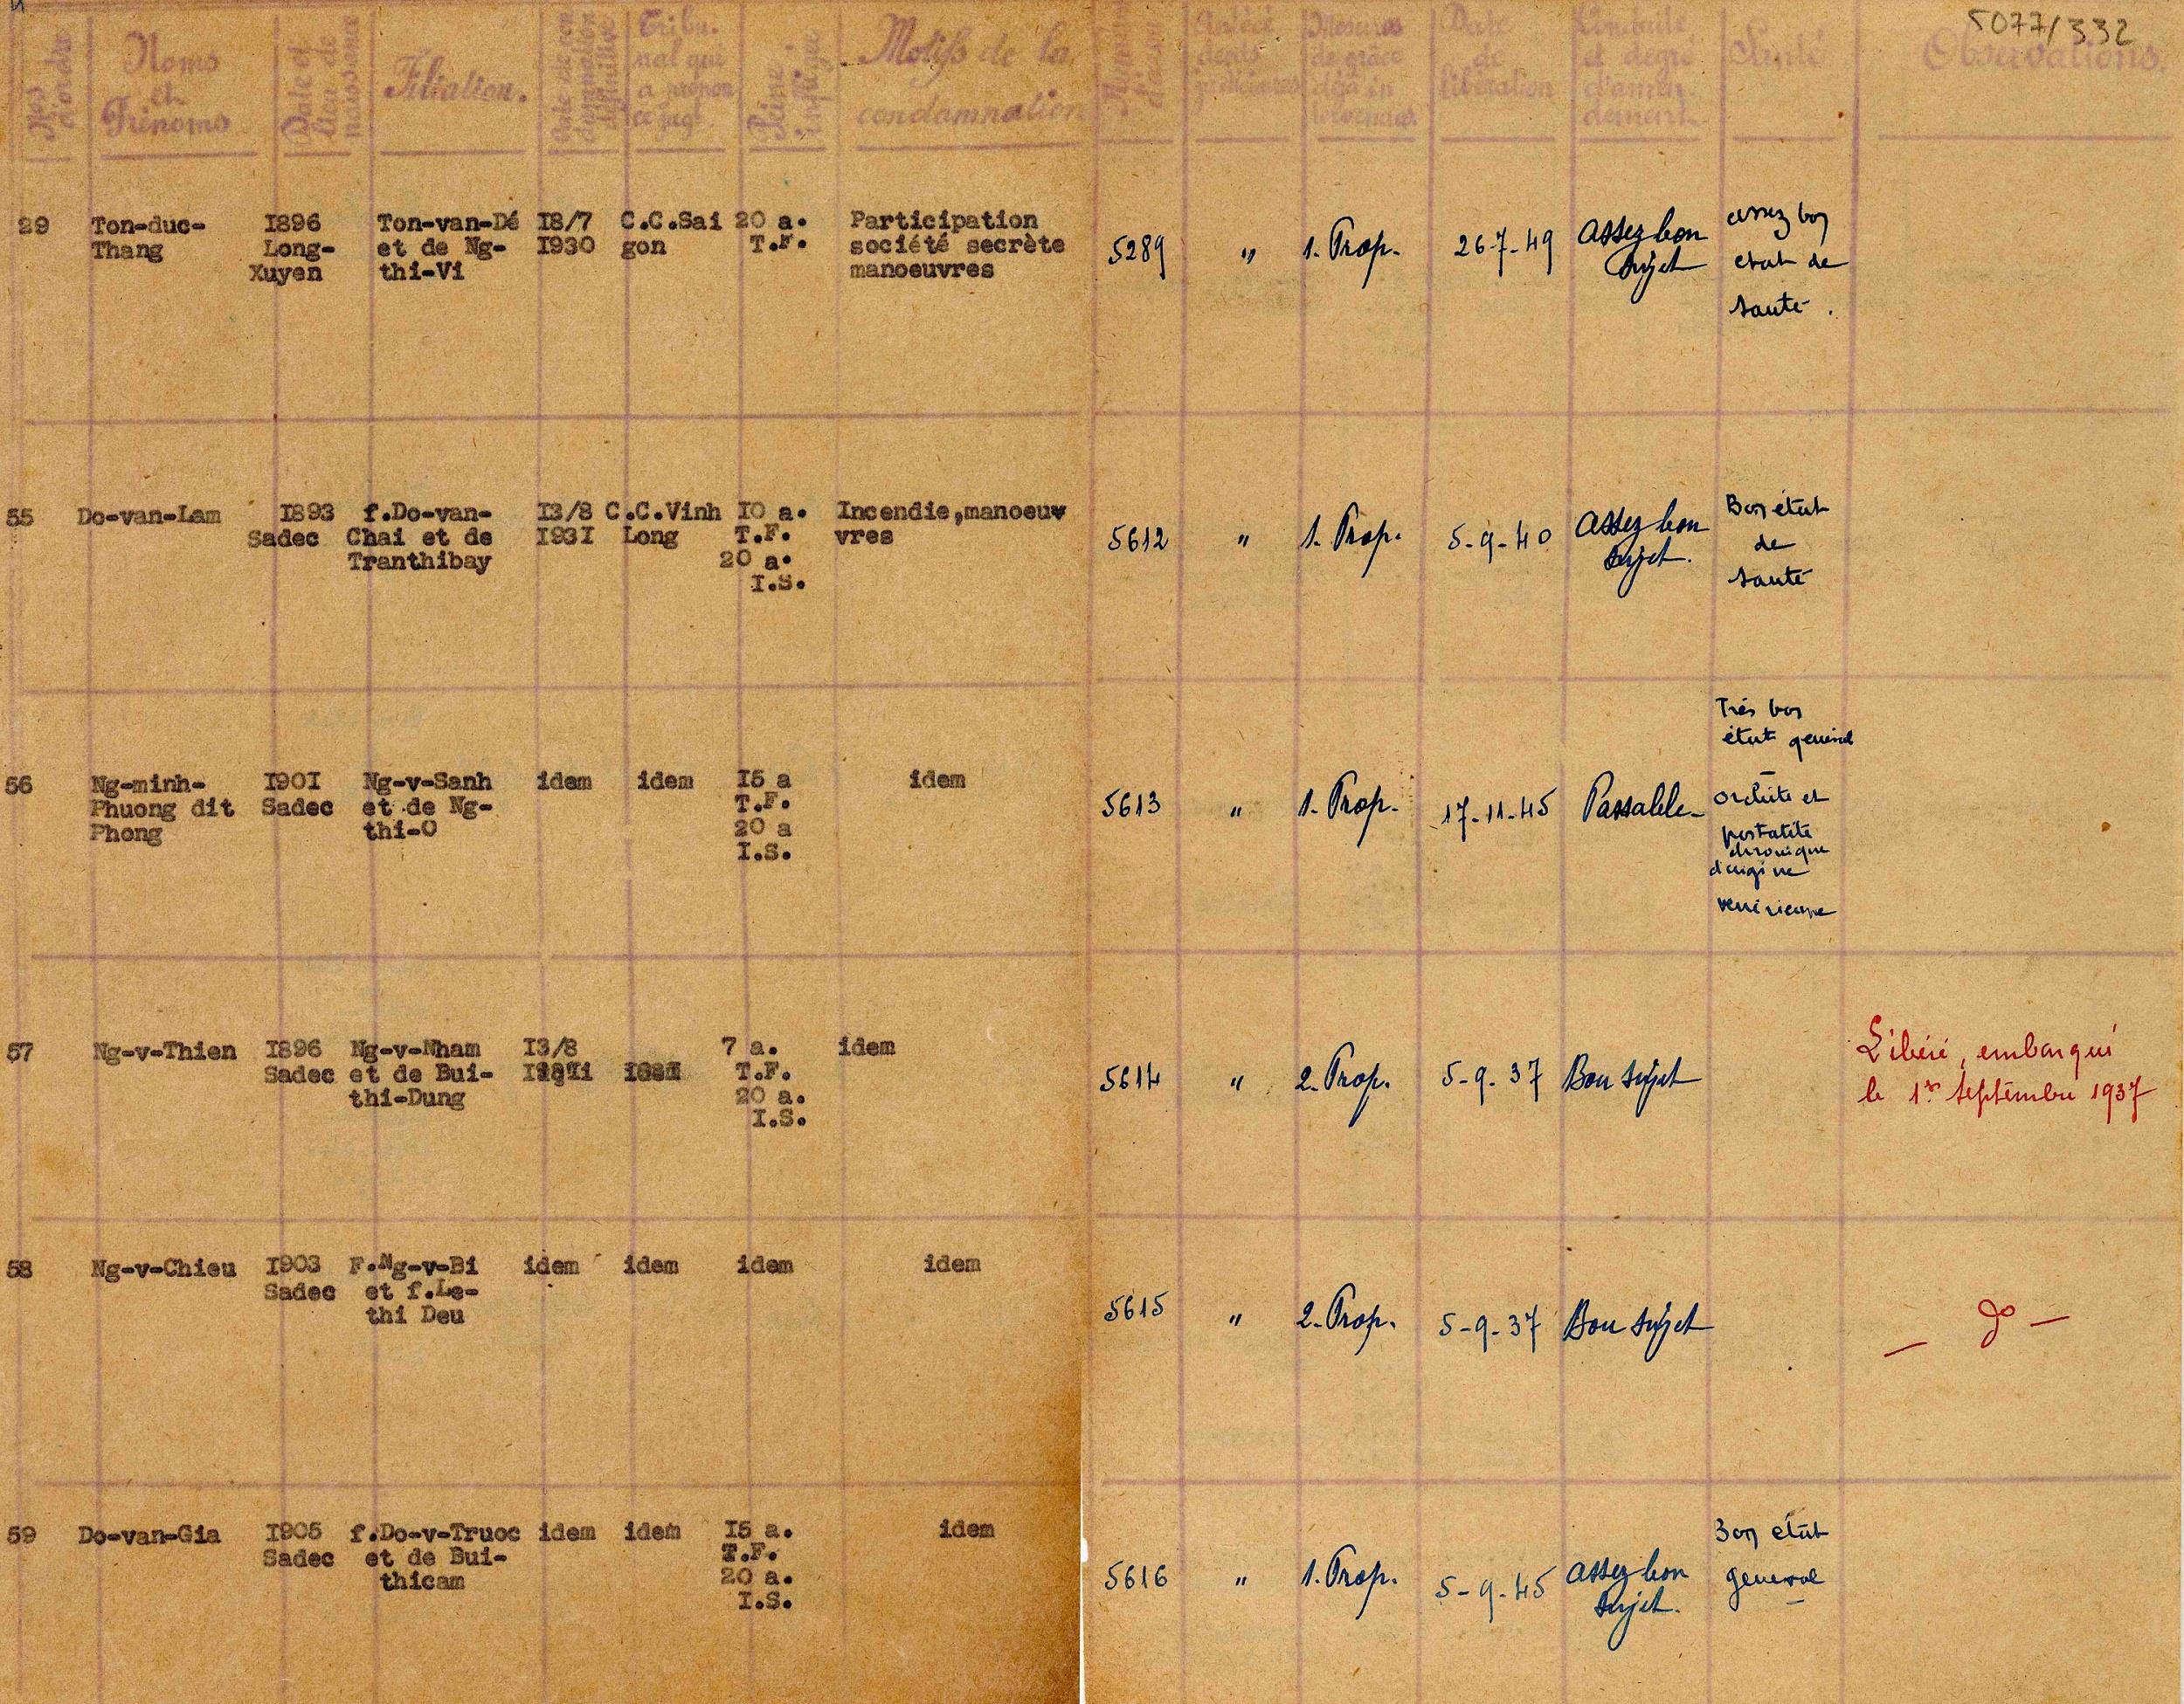 5077/332
Nos d'ordre
Noms
et
Prénoms
Date et
lieu de
naissance
Filiation.
Date de con
damnation
définitive
Tribu.
nal qui
a pronon
cé jugt
Peine
infligée
Motifs de la
condamnation
Antécé
dents
judiciaires
Mesures
de grâce
déjà in
tervenues
Date
de
libération
Conduite
et degré
d'amen
dement.
Santé
Observations.
29
Ton-duc-
Thang
I896
Long-
Xuyen
Ton-van-Dé
et de Ng-
thi-Vi
I8/7
I930
C.C.Sai
gon
20 a.
T.F.
Participation
société secrète
manoeuvres
5289
"
1. Prop.
26-7-49
assez bon
sujet
assez bon
etat de
santé.
55
Do-van-Lam
I893
Sadec
f.Do-van-
Chai et de
Tranthibay
I3/8
I93I
C.C.Vinh
Long
I0 a.
T.F.
20 a.
I.S.
Incendie,manoeuv
vres
5612
"
1. Prop.
5-9-40
assez bon
sujet.
Bon état
de
santé
56
Ng-minh-
Phuong dit
Phong
I90I
Sadec
Ng-v-Sanh
et de Ng-
thi-O
idem
idem
I5 a
T.F.
20 a
I.S.
idem
5613
"
1. Prop.
17-11-45
Passable-
Très bon
état général
Orchite et
postatite
chronique
d'origine
vénérienne
57
Ng-v-Thien
I896
Sadec
Ng-v-Nham
et de Bui-
thi-Dung
I3/8
7 a.
T.F.
20 a.
I.S.
idem
5614
"
2. Prop.
5-9-37
Bon sujet
Libéré, embarqué
le 1er septembre 1937
58
Ng-v-Chieu
I903
Sadec
F.Ng-v-Bi
et f.Le-
thi Deu
idem
idem
idem
idem
5615
"
2. Prop.
5-9-37
Bon sujet
— do —
59
Do-van-Gia
I905
Sadec
f.Do-v-Truoc
et de Bui-
thicam
idem
idem
I5 a.
T.F.
20 a.
I.S.
idem
5616
"
1. Prop.
5-9-45
assez bon
sujet.
Bon état
general